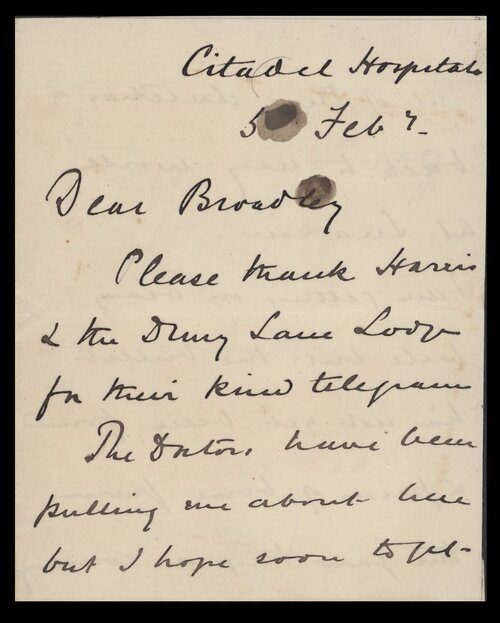 Citadel Hospital
5 Feby.
Dear Broadley
Please thank Harris
& the Drury Lane Lodge
for their kind telegram
The Doctors have been
pulling me about here
but I hope soon to get